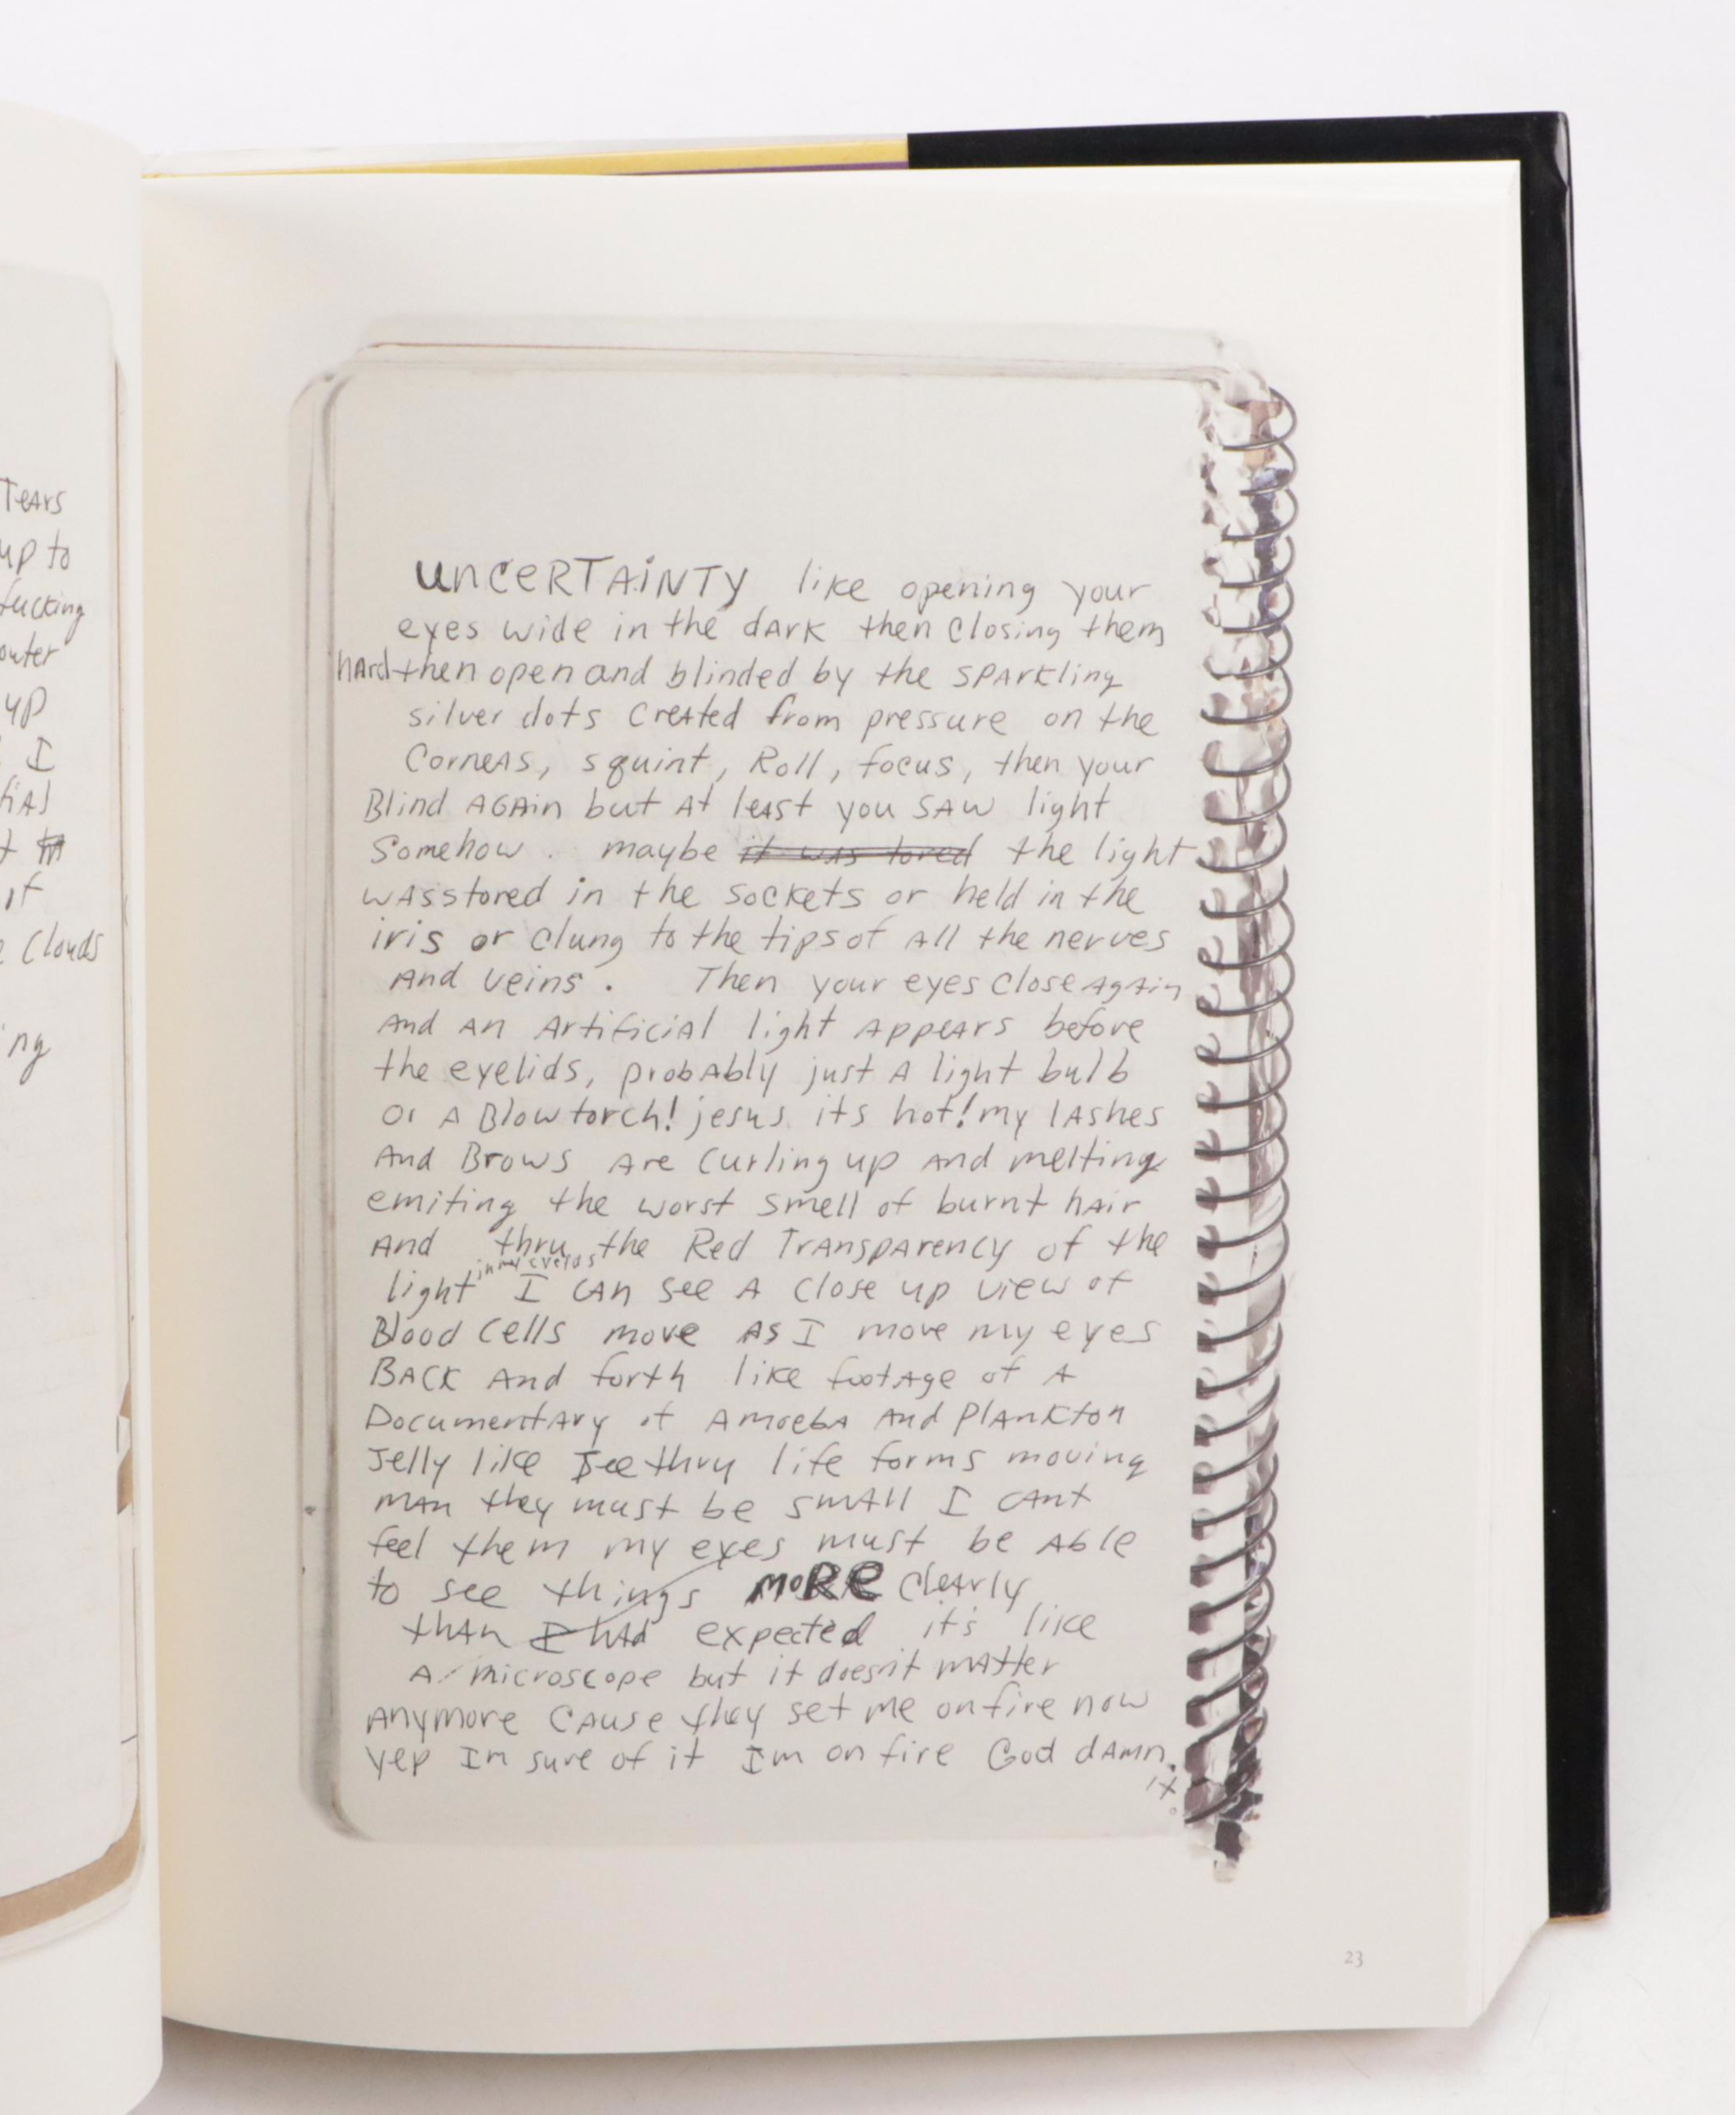 Tears
up to
fucking
outer
up
I
it
Clouds
ing
UNCERTAINTY like opening your
eyes wide in the dark then closing them
hard then open and blinded by the sparkling
silver dots created from pressure on the
corneas, squint, Roll, focus, then your
Blind AGAin but at least you saw light
Somehow. maybe it was tored the light
was stored in the sockets or held in the
iris or clung to the tips of all the nerves
and veins. Then your eyes close again
and an artificial light appears before
the eyelids, probably just a light bulb
or a Blow torch! jesus its hot! my lashes
And Brows are curling up and melting
emiting the worst smell of burnt hair
And thru the Red Transparency of the
inner
light I can see a close up view of
Blood cells move as I move my eyes
BACK and forth like footage of a
Documentary of Amoeba and plankton
Jelly like See thru life forms moving
man they must be small I cant
feel them my eyes must be Able
to see things MORE clearly
than I had expected it's like
A microscope but it doesn't matter
anymore cause they set me on fire now
yep Im sure of it Im on fire God damn
it
23